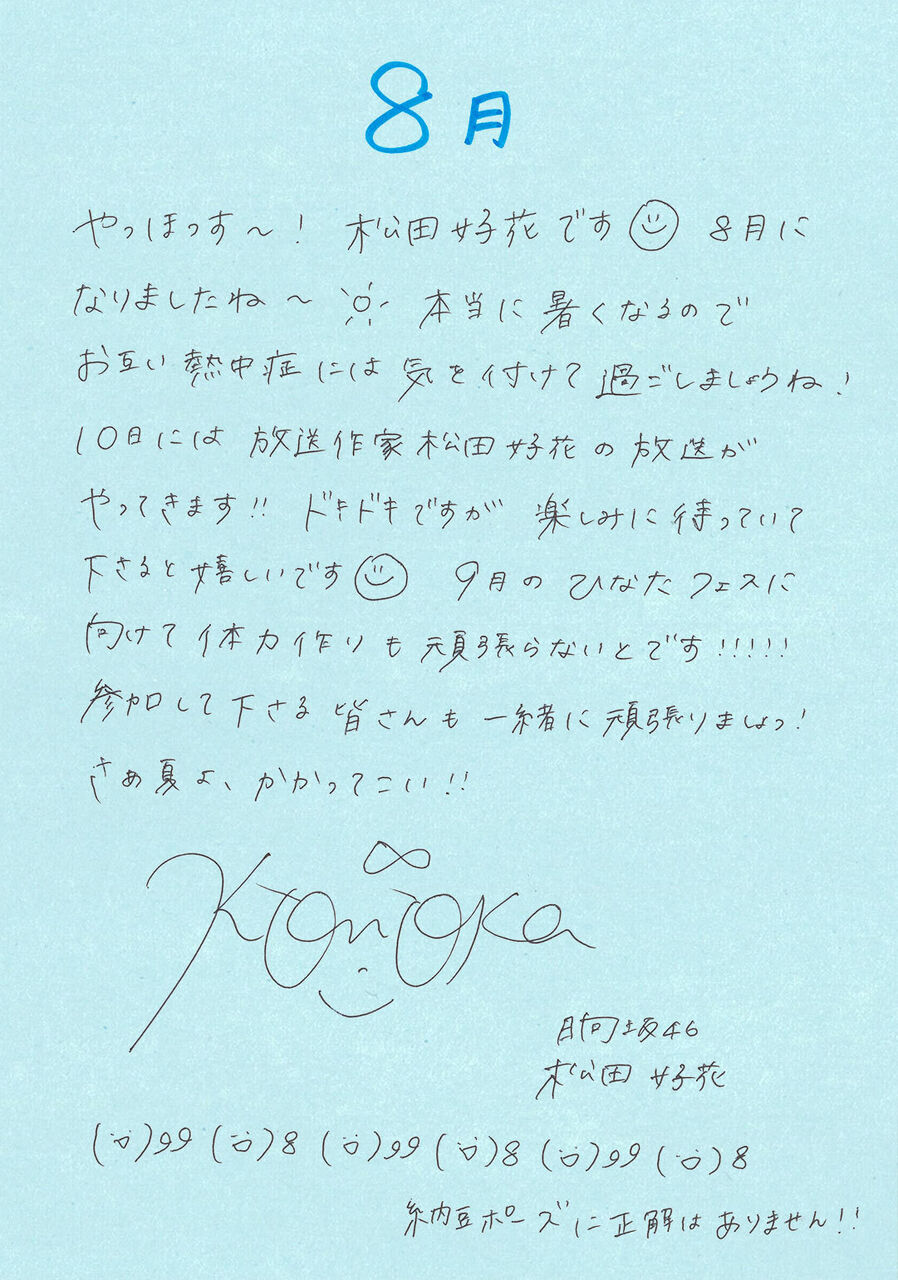 8月
やっほっす〜! 松田好花です☺ 8月に
なりましたね〜☀ 本当に暑くなるので
お互い熱中症には気を付けて過ごしましょうね!
10日には放送作家松田好花の放送が
やってきます!! ドキドキですが 楽しみに待っていて
下さると嬉しいです☺ 9月のひなたフェスに
向けて体力作りも頑張らないとです!!!!!
参加して下さる皆さんも一緒に頑張りましょっ!
さあ夏よ、かかってこい!!
Konoka
日向坂46
松田好花
(ü)99 (ü)8 (ü)99 (ü)8 (ü)99 (ü)8
納豆ポーズに正解はありません!!